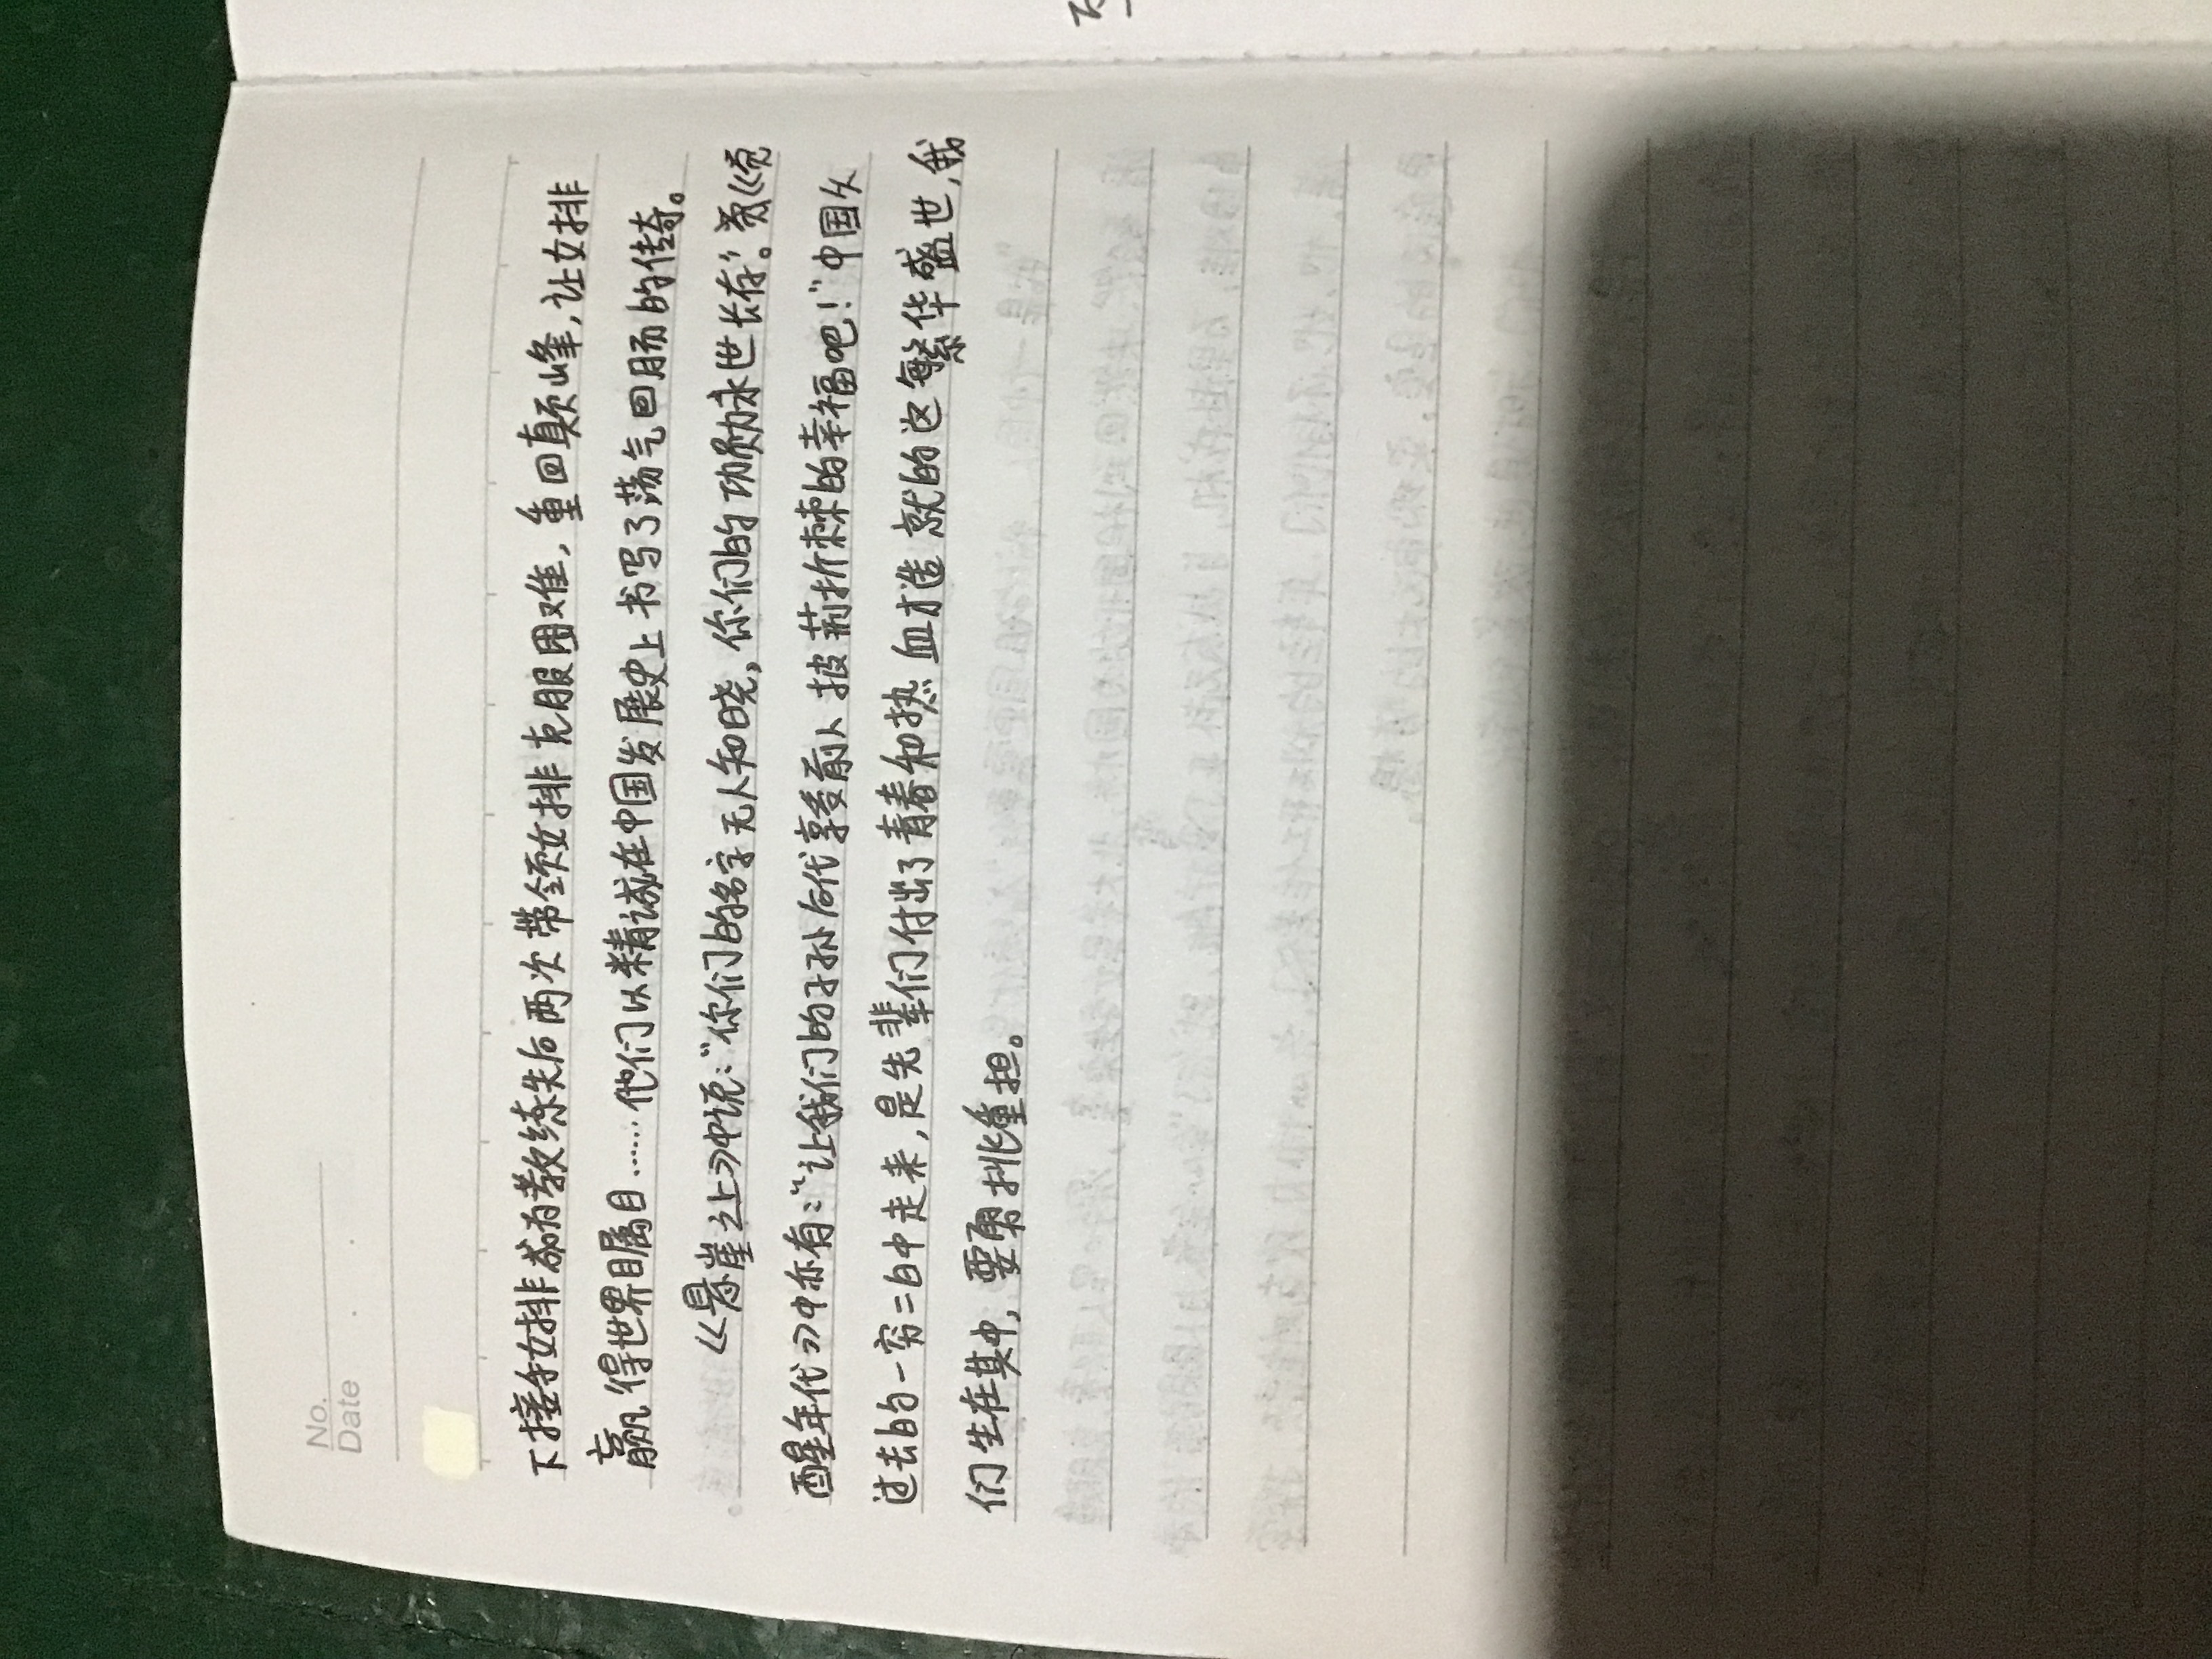 No.
Date
下接手女排成为教练失后两次带领女排克服困难,重回颠峰,让女排
赢得世界瞩目……他们以精诚在中国发展史上书写了荡气回肠的传奇。
《悬崖之上》中说:“你们的名字无人知晓,你们的功勋永世长存”。
醒年代》中亦有:“让我们的子孙后代享受前人披荆折棘的幸福吧!”中国从
过去的一穷二白中走来,是先辈们付出了青春和热血才造就的这繁华盛世,我
们生在其中,要勇挑重担。